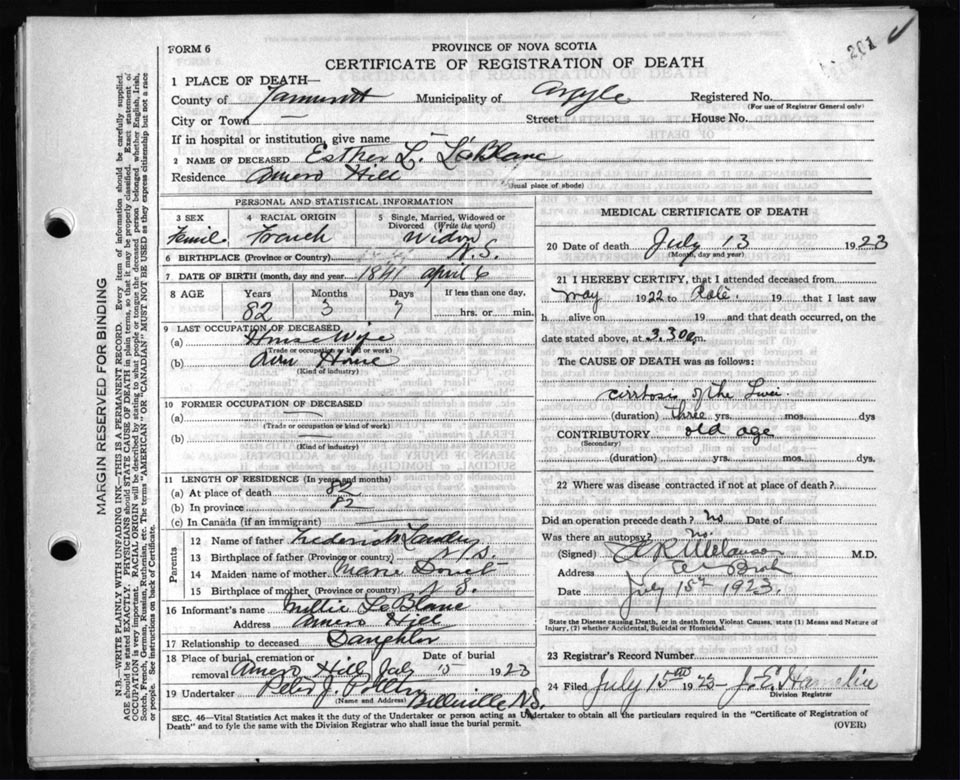 201
FORM 6
PROVINCE OF NOVA SCOTIA
CERTIFICATE OF REGISTRATION OF DEATH
1 PLACE OF DEATH—
County of Yarmouth Municipality of Argyle Registered No.
(For use of Registrar General only)
City or Town — Street House No.
If in hospital or institution, give name —
2 NAME OF DECEASED Esther L. LeBlanc
Residence Amero Hill
(Usual place of abode)
PERSONAL AND STATISTICAL INFORMATION
3 SEX 4 RACIAL ORIGIN 5 Single, Married, Widowed or Divorced (Write the word)
French Widow
6 BIRTHPLACE (Province or Country) N.S.
7 DATE OF BIRTH (month, day and year) 1841 April 6
8 AGE Years Months Days If less than one day,
82 3 7 hrs. or min.
9 LAST OCCUPATION OF DECEASED
(a) House Wife
(Trade or occupation or kind of work)
(b) Own Home
(Kind of industry)
10 FORMER OCCUPATION OF DECEASED
(a) —
(Trade or occupation or kind of work)
(b) —
(Kind of industry)
11 LENGTH OF RESIDENCE (In years and months)
(a) At place of death 82
(b) In province 82
(c) In Canada (if an immigrant) —
Parents
12 Name of father Frederick Landry
13 Birthplace of father (Province or country) N.S.
14 Maiden name of mother Marie Doucet
15 Birthplace of mother (Province or country) N S.
16 Informant's name Millie LeBlanc
Address Amero Hill
17 Relationship to deceased Daughter
18 Place of burial, cremation or removal Amero Hill Date of burial July 15 1923
19 Undertaker Peter J. Pottier
(Name and Address) Belleville N.S.
MEDICAL CERTIFICATE OF DEATH
20 Date of death July 13 1923
(Month, day and year)
21 I HEREBY CERTIFY, that I attended deceased from
May 1922 to Date. 19 that I last saw
h alive on 19 and that death occurred, on the
date stated above, at 3.30 m.
The CAUSE OF DEATH was as follows:
cirrhosis of the Liver
(duration) three yrs. mos. dys
CONTRIBUTORY old age
(Secondary)
(duration) yrs. mos. dys.
22 Where was disease contracted if not at place of death?
Did an operation precede death? No Date of
Was there an autopsy? No.
(Signed) M.D.
Address Eel Brook
Date July 15th 1923.
State the Disease causing Death, or in death from Violent Causes, state (1) Means and Nature of Injury, (2) whether Accidental, Suicidal or Homicidal.
23 Registrar's Record Number
24 Filed July 15th 1923 J. E. Hamelin
Division Registrar
SEC. 46—Vital Statistics Act makes it the duty of the Undertaker or person acting as Undertaker to obtain all the particulars required in the "Certificate of Registration of
Death" and to fyle the same with the Division Registrar who shall issue the burial permit. (OVER)
MARGIN RESERVED FOR BINDING
N.B.—WRITE PLAINLY WITH UNFADING INK—THIS IS A PERMANENT RECORD. Every item of information should be carefully supplied.
AGE should be stated EXACTLY. PHYSICIANS should STATE CAUSE OF DEATH in plain terms, so that it may be properly classified. Exact statement of
OCCUPATION is very important. RACIAL ORIGIN will be described by stating to what people or tongue the deceased person belonged whether English, Irish,
Scotch, French, German, Russian, Ruthenian, etc. The terms "AMERICAN" OR "CANADIAN" MUST NOT BE USED as they express citizenship but not a race
or people. See instructions on back of Certificate.